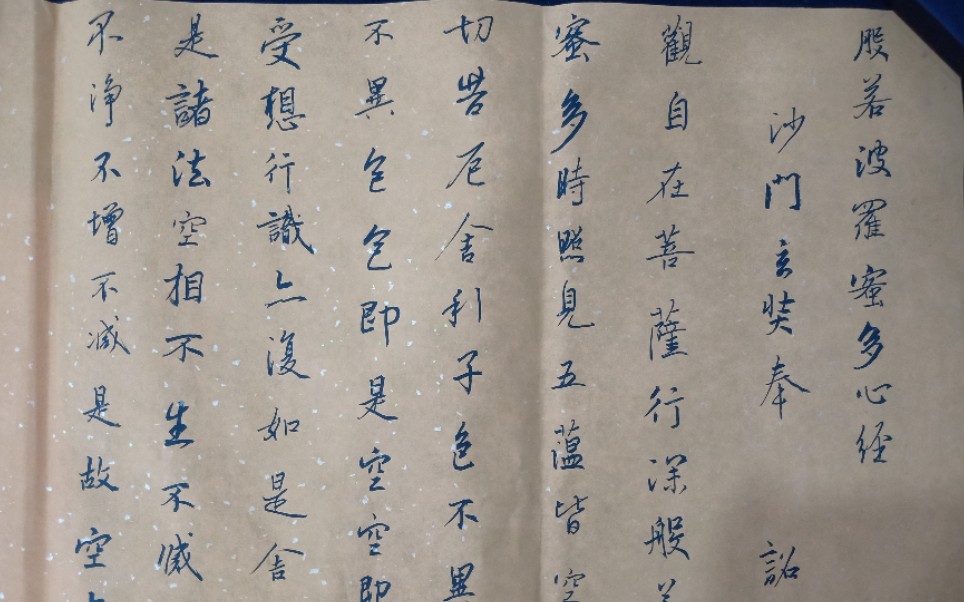 般若波羅蜜多心经
沙門玄奘奉 詔
觀自在菩薩行深般若
蜜多時照見五蘊皆空
切苦厄舍利子色不異
不異色色即是空空即
受想行識亦復如是舍
是諸法空相不生不滅
不淨不增不减是故空